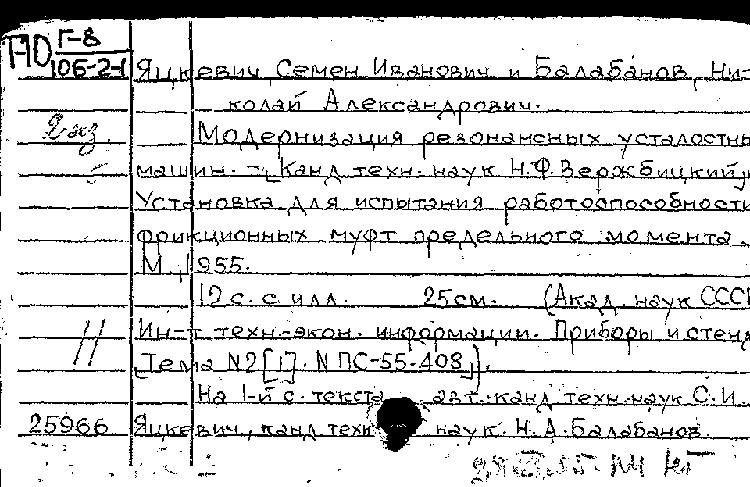 Т-10 Г-8
106-2-1 Яцкевич, Семен Иванович и Балабанов, Ни-
колай Александрович.
2 экз. Модернизация резонансных усталостны
машин. – [Канд. техн. наук Н.Ф. Вержбицкий],
Установка для испытания работоспособности
фрикционных муфт предельного момента.
М., 1955.
12 с. с илл. 25 см. (Акад. наук СССР
Ин-т техн.-экон. информации. Приборы и стенд
Тема N2 [1]. N ПС-55-408).
На 1-й с. текста авт. канд. техн. наук С.И.
25966 Яцкевич, канд. техн. наук Н.А. Балабанов.